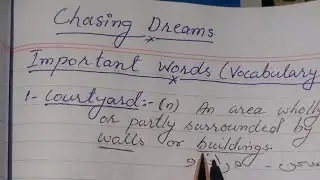 Chasing Dreams
Important Words (Vocabulary
1- Courtyard:- (n) An area wholly
or partly surrounded by
walls or buildings.